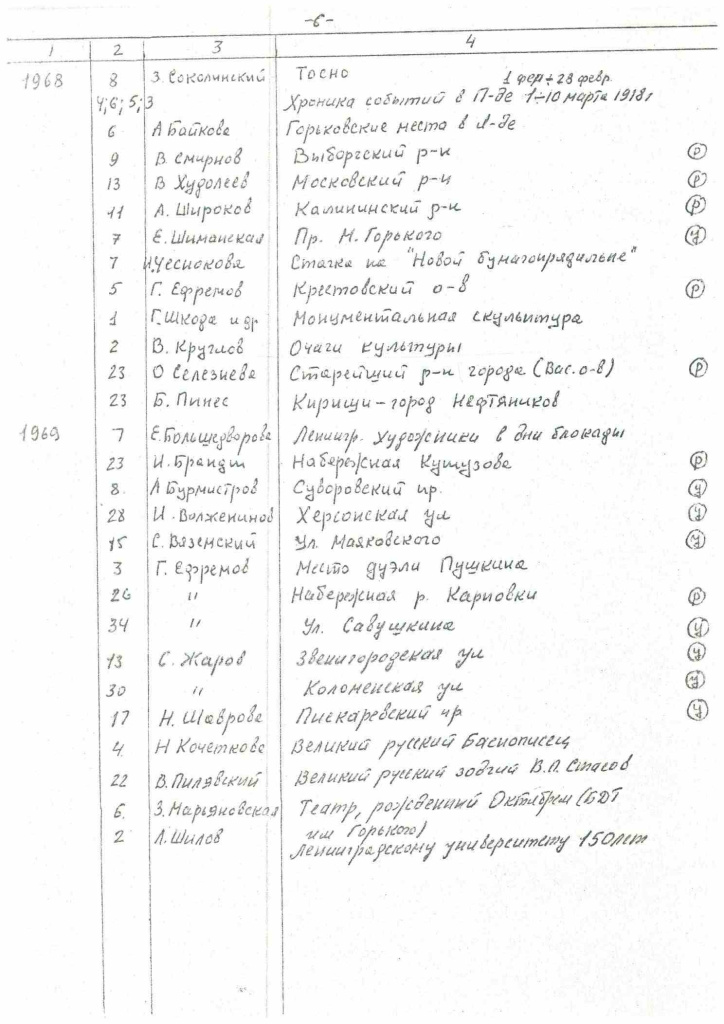 -6-
1 2 3 4
1968 8 З. Соколинский Тосно 1 фер ÷ 28 февр.
4; 6; 5; 3 Хроника событий в П-де 1÷10 марта 1918г
6 А Байкова Горьковские места в Л-де
9 В. Смирнов Выборгский р-н (р)
13 В Худолеев Московский р-н (р)
11 А. Широков Калининский р-н (р)
7 Е. Шиманская Пр. М. Горького (у)
7 И. Чеснокова Стачка на "Новой бумагопрядильне"
5 Г. Ефремов Крестовский о-в (р)
1 Г. Шкода и др Монументальная скульптура
2 В. Круглов Очаги культуры
23 О Селезнева Старейший р-н города (Вас. о-в) (р)
23 Б. Пинес Кириши - город Нефтяников
1969 7 Е. Большедворова Ленингр. художники в дни блокады
23 И. Брандт Набережная Кутузова (р)
8. Л Бурмистров Суворовский пр. (у)
28 И. Волженинов Херсонская ул (у)
15 С. Вяземский Ул. Маяковского (у)
3 Г. Ефремов Место дуэли Пушкина
26 " Набережная р. Карповки (р)
34 " Ул. Савушкина (у)
13 С. Жаров Звенигородская ул (у)
30 " Коломенская ул (у)
17 Н. Шаврова Пискаревский пр (у)
4 Н Кочеткова Великий русский Баснописец
22 В. Пилявский Великий русский зодчий В.П. Стасов
6. З. Марьяновская Театр, рожденный Октябрем (БДТ
им Горького)
2 Л. Шилов Ленинградскому университету 150 лет